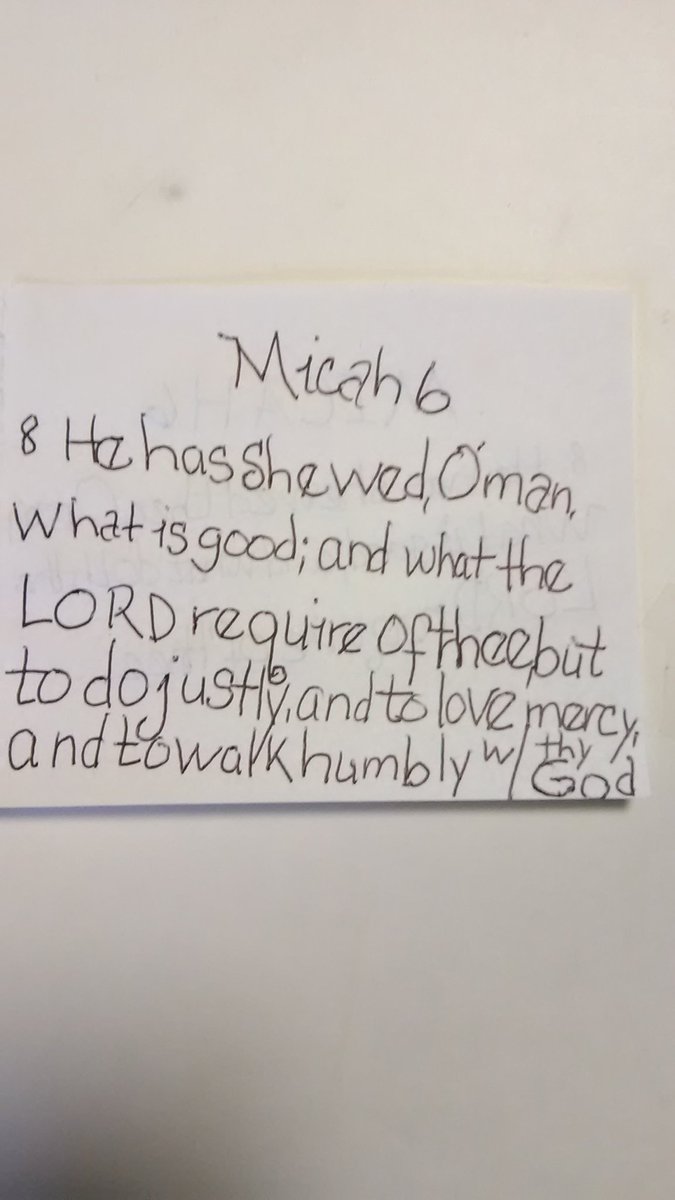 Micah 6
8 He has shewed, O man,
what is good; and what the
LORD require of thee, but
to do justly, and to love mercy,
and to walk humbly w/ thy God